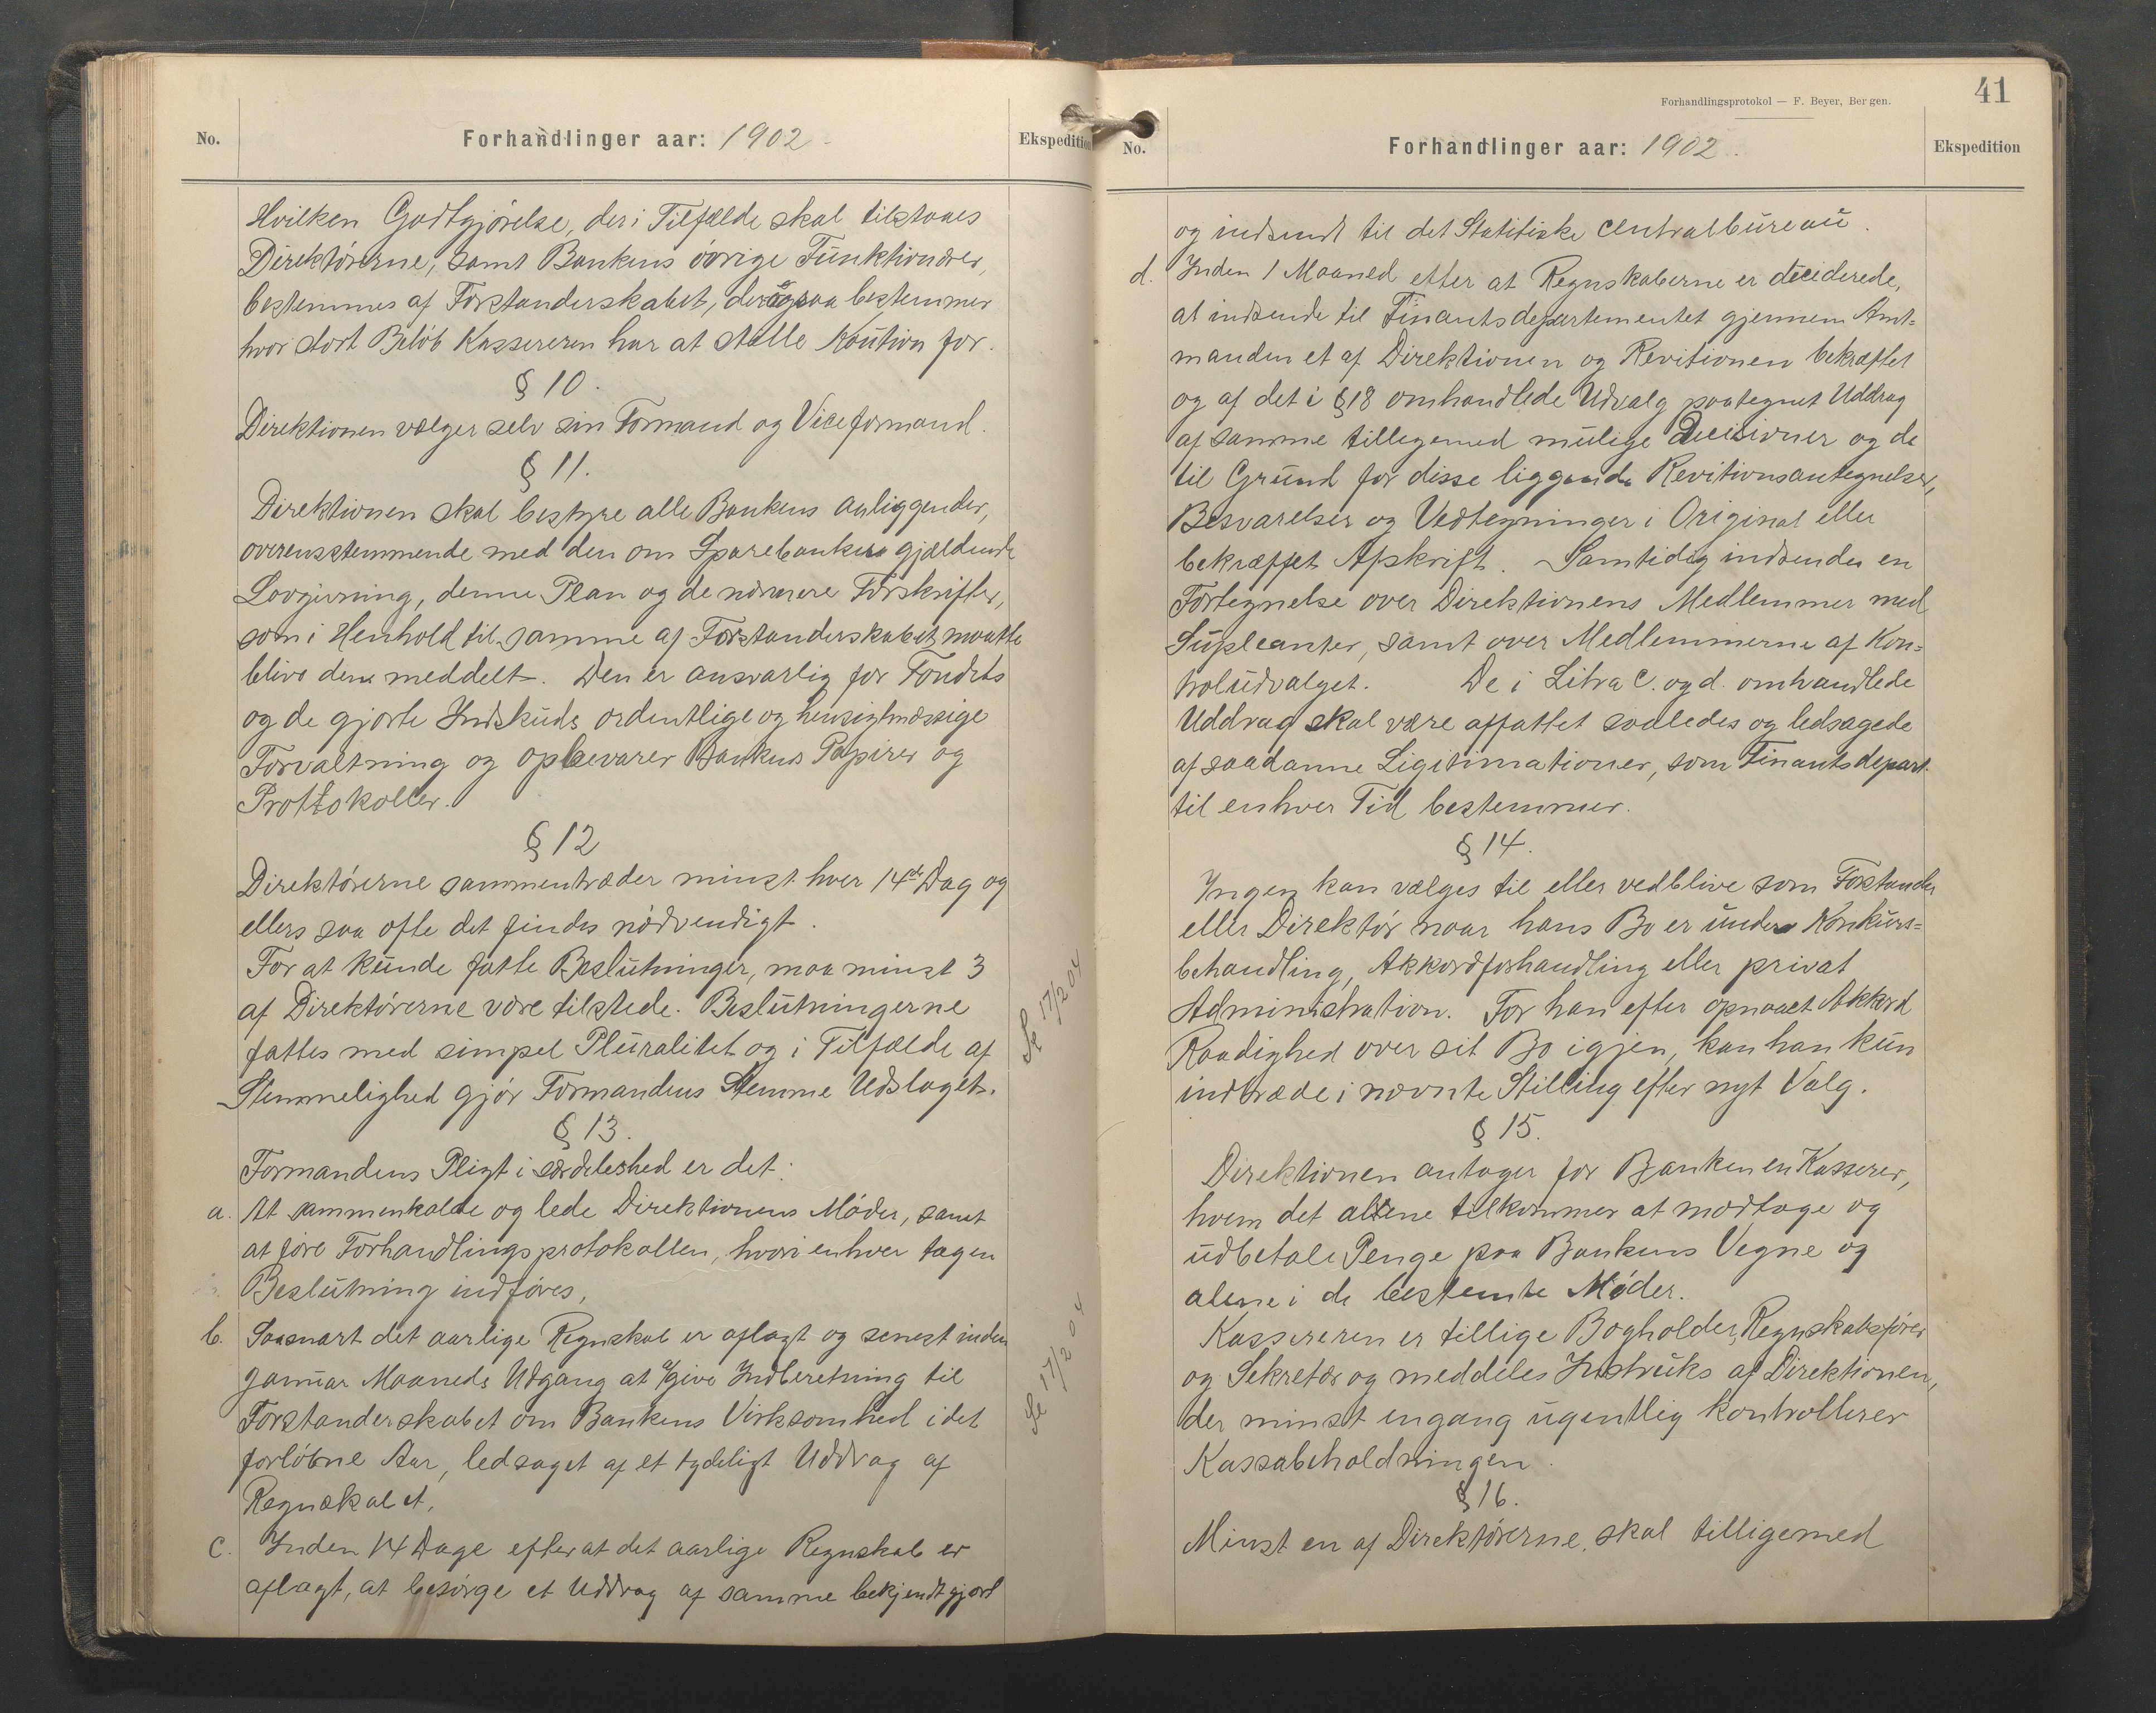 No.
Forhandlinger aar: 1902
Ekspedition
Hvilken Godtgjørelse, der i Tilfælde skal tilstaaes
Direktørerne, samt Bankens øvrige Funktionærer,
bestemmes af Forstanderskabet, der ogsaa bestemmer
hvor stort Beløb Kassereren har at stelle Kaution for.
§ 10.
Direktionen vælger selv sin Formand og Viceformand.
§ 11.
Direktionen skal bestyre alle Bankens anliggender,
overensstemmende med den om Sparebanker gjældende
Lovgivning, denne Plan og de nærmere Forskrifter,
som i Henhold til samme af Forstanderskabet maatte
blive den meddelt. Den er ansvarlig for Fondets
og de gjorte Indskuds ordentlige og hensigtmæssige
Forvaltning og opbevarer Bankens Papirer og
Prottokoller.
§ 12
Direktørerne sammentræder minst hver 14de Dag og
ellers saa ofte det findes nødvendigt.
For at kunde fatte Beslutninger, maa minst 3
af Direktørerne være tilstede. Beslutningerne
fattes med simpel Pluralitet og i Tilfælde af
Stemmelighed gjør Formandens Stemme Udslaget.
Se 17/2 04
§ 13.
Formandens Pligt i særdeleshed er det:
a. At sammenkalde og lede Direktionens Møder, samt
at føre Forhandlingsprotokollen, hvori enhver tagen
Beslutning indføres,
b. Saasnart det aarlige Regnskab er aflagt og senest inden
Januar Maaneds Udgang at give Indberetning til
Forstanderskabet om Bankens Virksomhed i det
forløbne Aar, ledsaget af et tydeligt Uddrag af
Regnskabet,
Se 17/2 04
c. Inden 14 Dage efter at det aarlige Regnskab er
aflagt, at besørge et Uddrag af samme bekjendtgjort
Forhandlingsprotokol — F. Beyer, Bergen.
41
No.
Forhandlinger aar: 1902.
Ekspedition
og indsendt til det Statitiske Centralbureau.
d. Inden 1 Maaned efter at Regnskaberne er deciderede,
at indsende til Finantsdepartementet gjennem Amt=
manden et af Direktionen og Revitionen bekræftet
og af det i § 18 omhandlede Udvalg paategnet Uddrag
af samme tillegemed mulige Decisioner og de
til Grund for disse liggende Revitionsantegnelser,
Besvarelser og Vedtegninger i Original eller
bekræftet Afskrift. Samtidig indsendes en
Fortegnelse over Direktionens Medlemmer med
Supleanter, samt over Medlemmerne af Kon=
troludvalget. De i Litra c. og d. omhandlede
Uddrag skal være affattet saaledes og ledsagede
af saadanne Ligitimationer, som Finantsdepart.
til enhver Tid bestemmer.
§ 14.
Ingen kan vælges til eller vedblive som Forstander
eller Direktør naar hans Bo er under Konkurs=
behandling, Akkordforhandling eller privat
Administration. Før han efter opnaaet Akkord
Raadighed over sit Bo igjen, kan han kun
indtræde i nævnte Stilling efter nyt Valg.
§ 15.
Direktionen antager for Banken en Kasserer,
hvem det alene tilkommer at modtage og
udbetale Penge paa Bankens Vegne og
alene i de bestemte Møder.
Kassereren er tillige Bogholder, Regnskabsfører
og Sekretær og meddeles Instruks af Direktionen,
der minst engang ugentlig kontrollerer
Kassabeholdningen.
§ 16.
Minst en af Direktørerne skal tilligemed